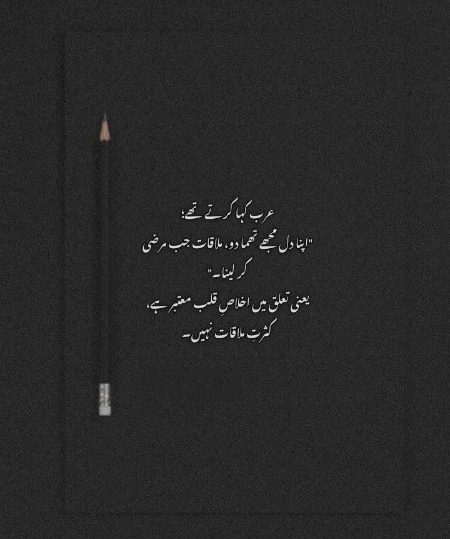 عرب کہا کرتے تھے؛
"اپنا دل مجھے تھما دو، ملاقات جب مرضی
کر لینا۔"
یعنی تعلق میں اخلاصِ قلب معتبر ہے،
کثرتِ ملاقات نہیں۔